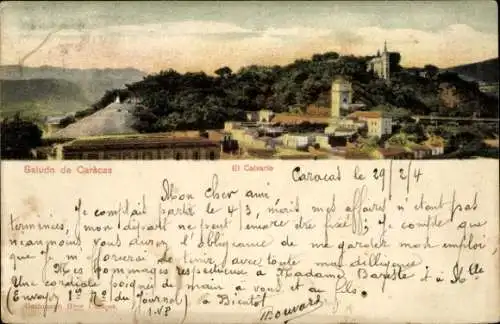 Saludo de Carácas
El Calvario
Caracas le 29/2/4
Mon cher ami
Je comptais partir le 4/3, mais mes affaires n'étant pas
terminées, mon départ ne peut encore être fixé, Je compte que
néanmoins vous aurez l'obligeance de me garder mon emploi
que je m'forcerai de tenir, avec toute ma diligence
Mes hommages respectueux à Madame et à Mlle
Une cordiale poignée de main à vous et au fils
(Envoyez 1er No du Journal) à Bientôt
Bouvard